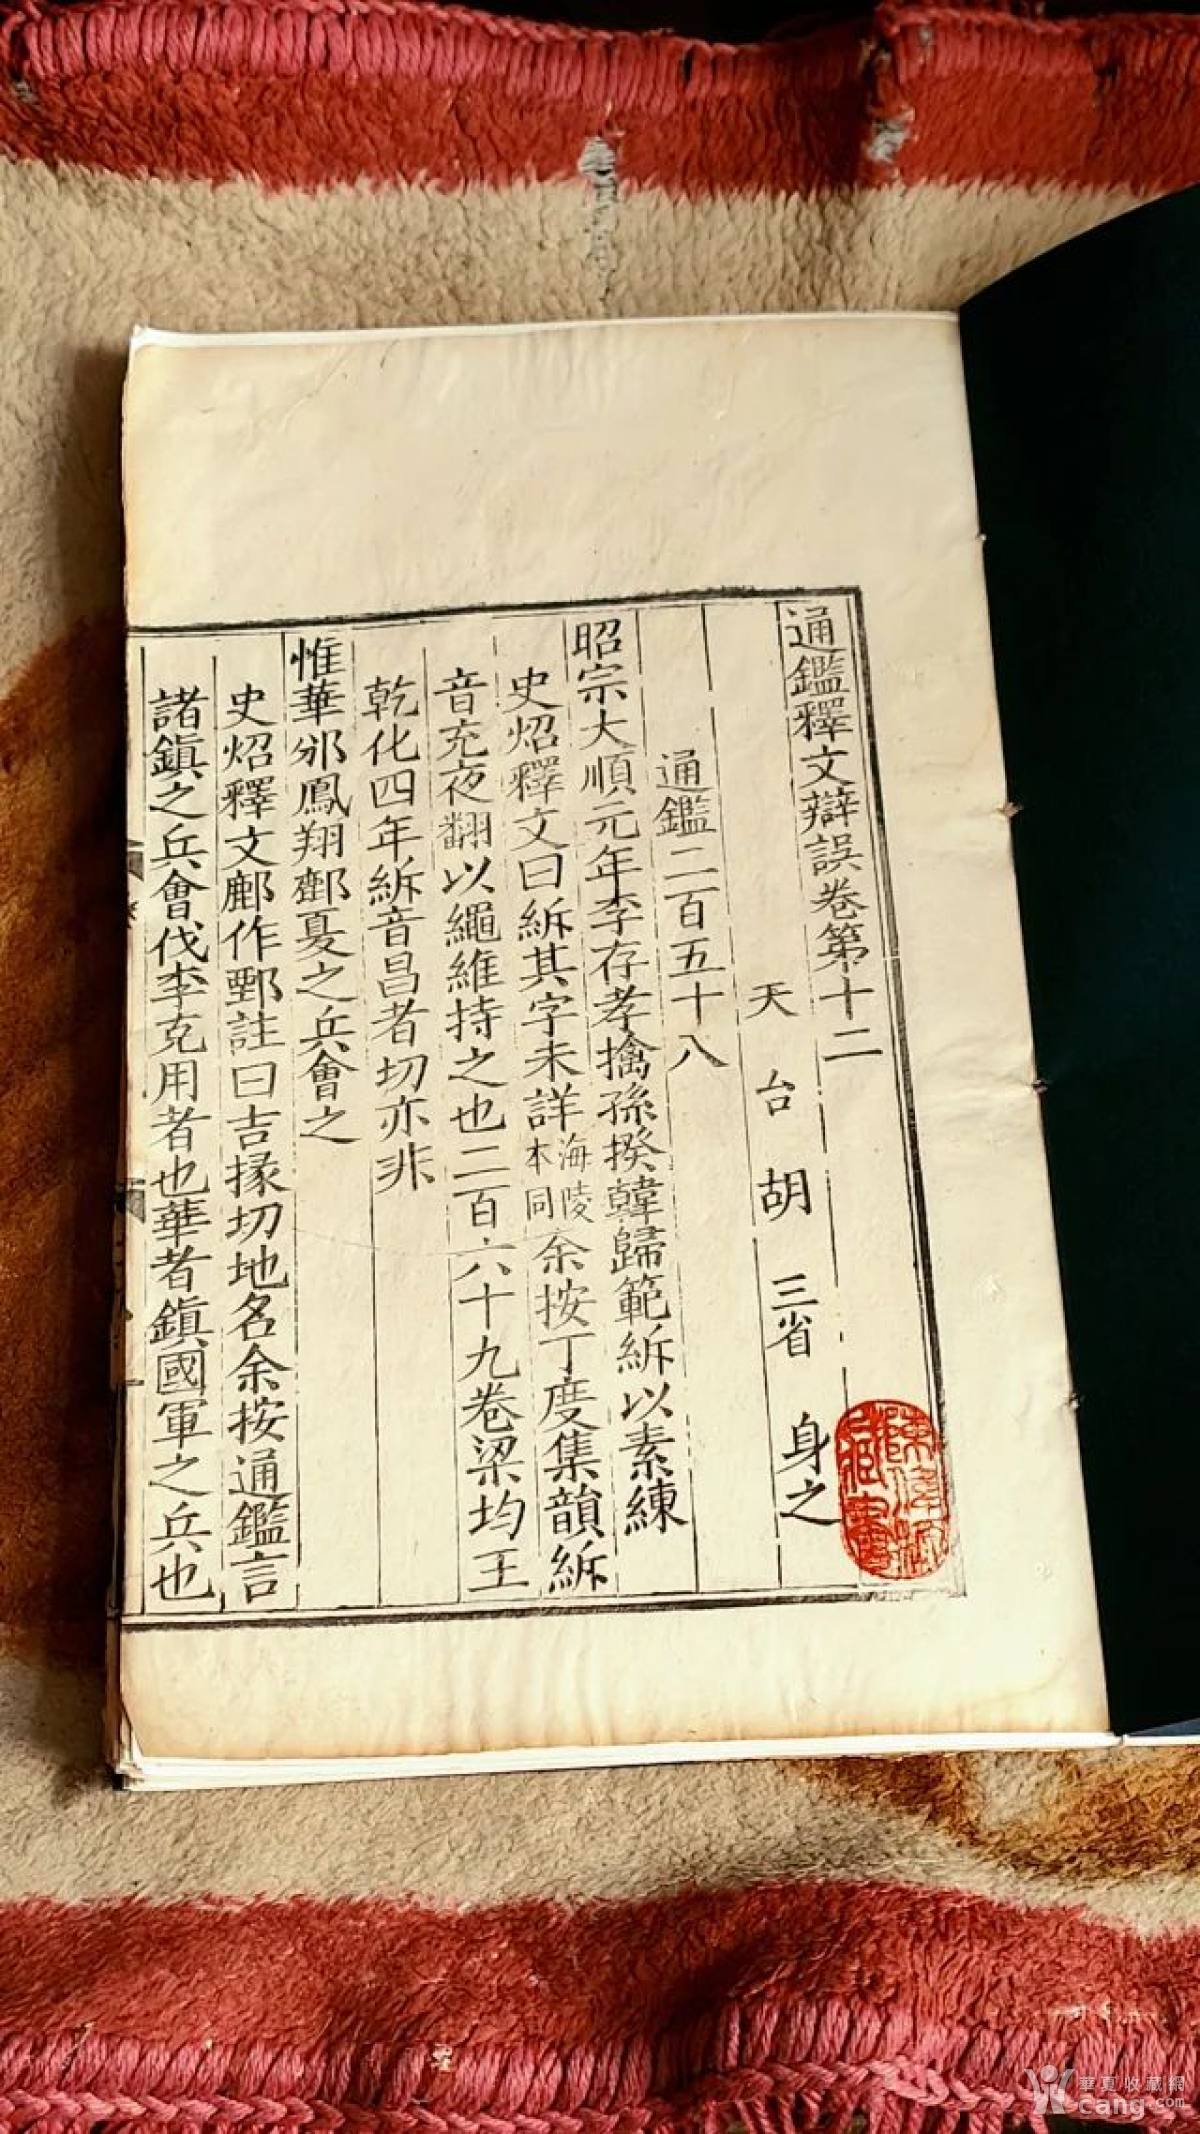 通鑑釋文辯誤卷第十二
天台胡三省身之
通鑑二百五十八
昭宗大順元年李存孝擒孫揆韓歸範𦀌以素練
史炤釋文曰𦀌其字未詳海陵本同余按丁度集韻𦀌
音充夜翻以繩維持之也二百六十九卷梁均王
乾化四年𦀌音昌者切亦非
惟華邠鳳翔鄜夏之兵會之
史炤釋文鄜作鄄註曰吉掾切地名余按通鑑言
諸鎮之兵會伐李克用者也華者鎮國軍之兵也
華夏收藏網
cang.com